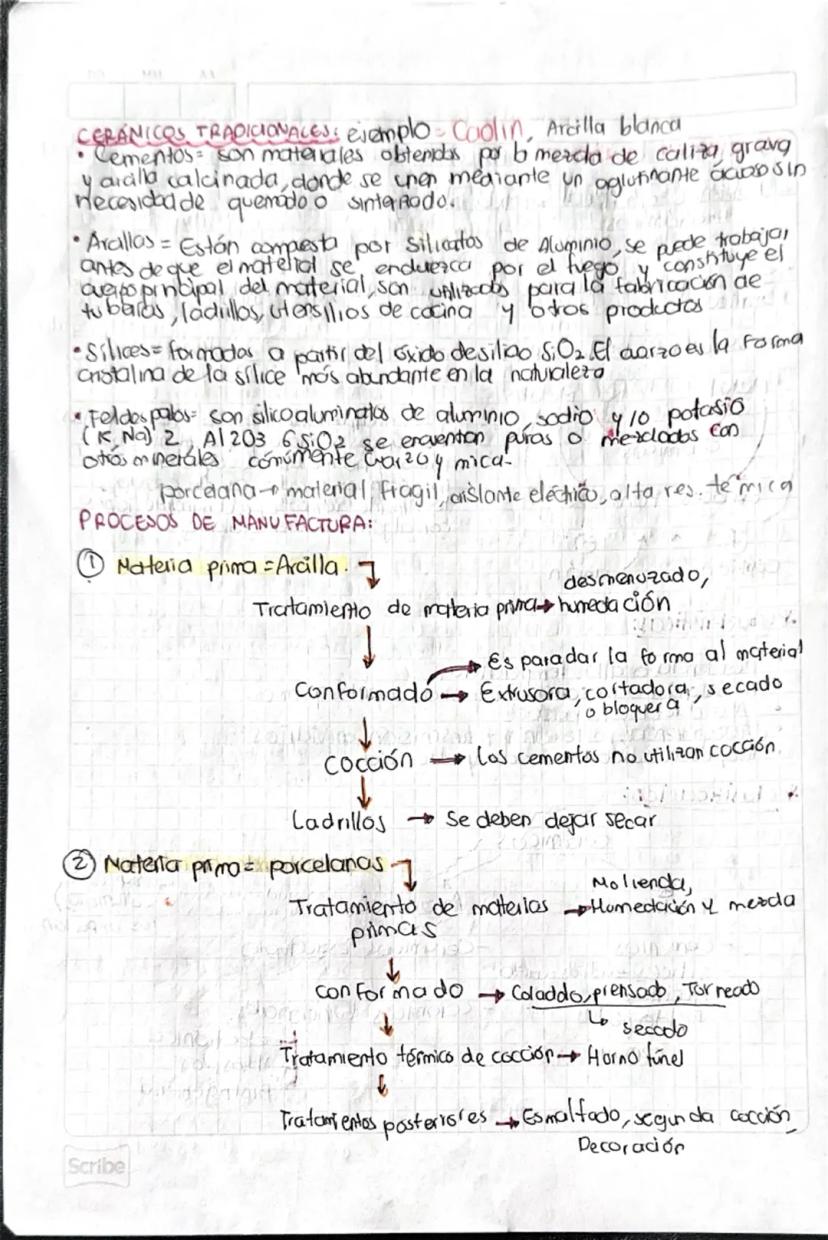 CERÁNICOS TRADICIONALES: ejemplo = Caolin, Arcilla blanca
• Cementos = son materiales obtenidos por la mezcla de caliza, grava
y arcilla calcinada, donde se unen mediante un aglutinante acuoso sin
necesidad de quemado o sinterizado.
• Arcillas = Están compuesta por silicatos de Aluminio, se puede trabajar
antes de que el material se endurezca por el fuego y constituye el
cuerpo principal del material, son utilizados para la fabricación de
tuberías, ladrillos, utensilios de cocina y otros productos
• Sílices = formadas a partir del óxido de silicio SiO2. El cuarzo es la forma
cristalina de la sílice más abundante en la naturaleza
• Feldespatos = son silicoaluminatos de aluminio, sodio y/o potasio
(K, Na) 2, Al2O3 6SiO2 se encuentran puras o mezclados con
otros minerales cómúnmente cuarzo y mica.
porcelana → material fragil, aislante eléctrico, alta res. térmica
PROCESOS DE MANUFACTURA:
① Materia prima = Arcilla.
desmenuzado,
Tratamiento de materia prima → humedación
→ Es para dar la forma al material
Conformado → Extrusora, cortadora, secado
o bloquera
Cocción → Los cementos no utilizan cocción
Ladrillos → Se deben dejar secar
② Materia prima = porcelanas
Molienda,
Tratamiento de materias → Humedación y mezcla
primas
conformado → Coladdo, prensado, Torneado
↳ secado
Tratamiento térmico de cocción → Horno túnel
Tratamientos posteriores → Esmaltado, segunda cocción,
Decoración
Scribe